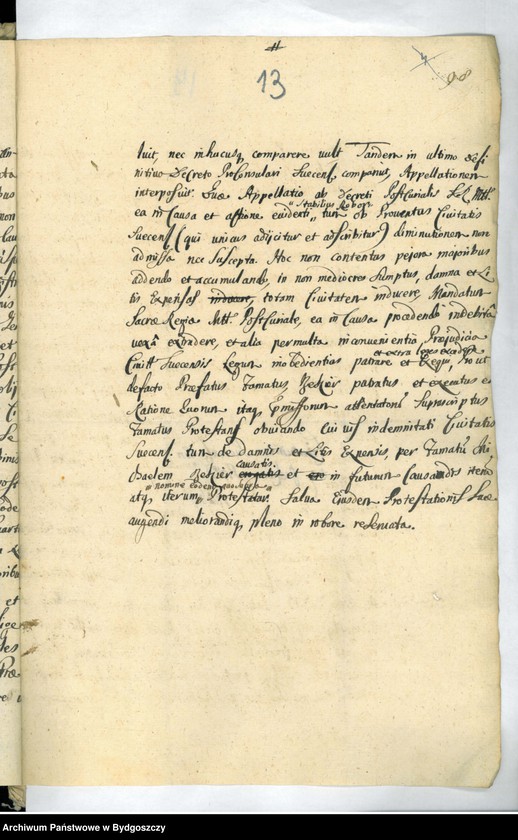 13
98
luit, nec in hucusq comparere vult Tandem in ultimo defi
nitivo Decreto ProConsulari Suecens. composuit, Appellationem
interposuit. Quæ Appellatio ab Decreti PostCurialis S. R. Mtt.
"Stabilius Robore
ea in Causa et affione evidenti " tum ob Proventus Civitatis
Suecens. (qui unicus adijcitur et adscribitur) diminutionem non
admissa nec suscepta. Hoc non contentus pejora majoribus
addendo et accumulando, in non mediocres sumptus, damna et Li
tis Expensas totam Civitatem inducere, Mandatum
Sacræ Regiæ Mtt. PostCuriale, ea in Causa procedendo indebitâ
extendere, et alia per multa inconvenientia, Præjudicia
et extra leges excedere
Civitt Suecensis Legum inobedientias patrare et Legu, Prout
defacto Præfatus Famatus patratus et exeratus e
Ratione Quorum itaq Præmissorum attentatorum Suprascriptus
Famatus Protestans obviando indemnitati Civitatis
Suecens. tum de Damnis et Litis Expensis, per Famatum Mi
causatis
chaelem et in futurum Causandis iterum
"nomine eodem quo supra"
atq iterum " Protestatur. Salva Ejusdem Protestationis Suæ
augendi meliorandiq pleno in robore reservata.
Archiwum Państwowe w Bydgoszczy